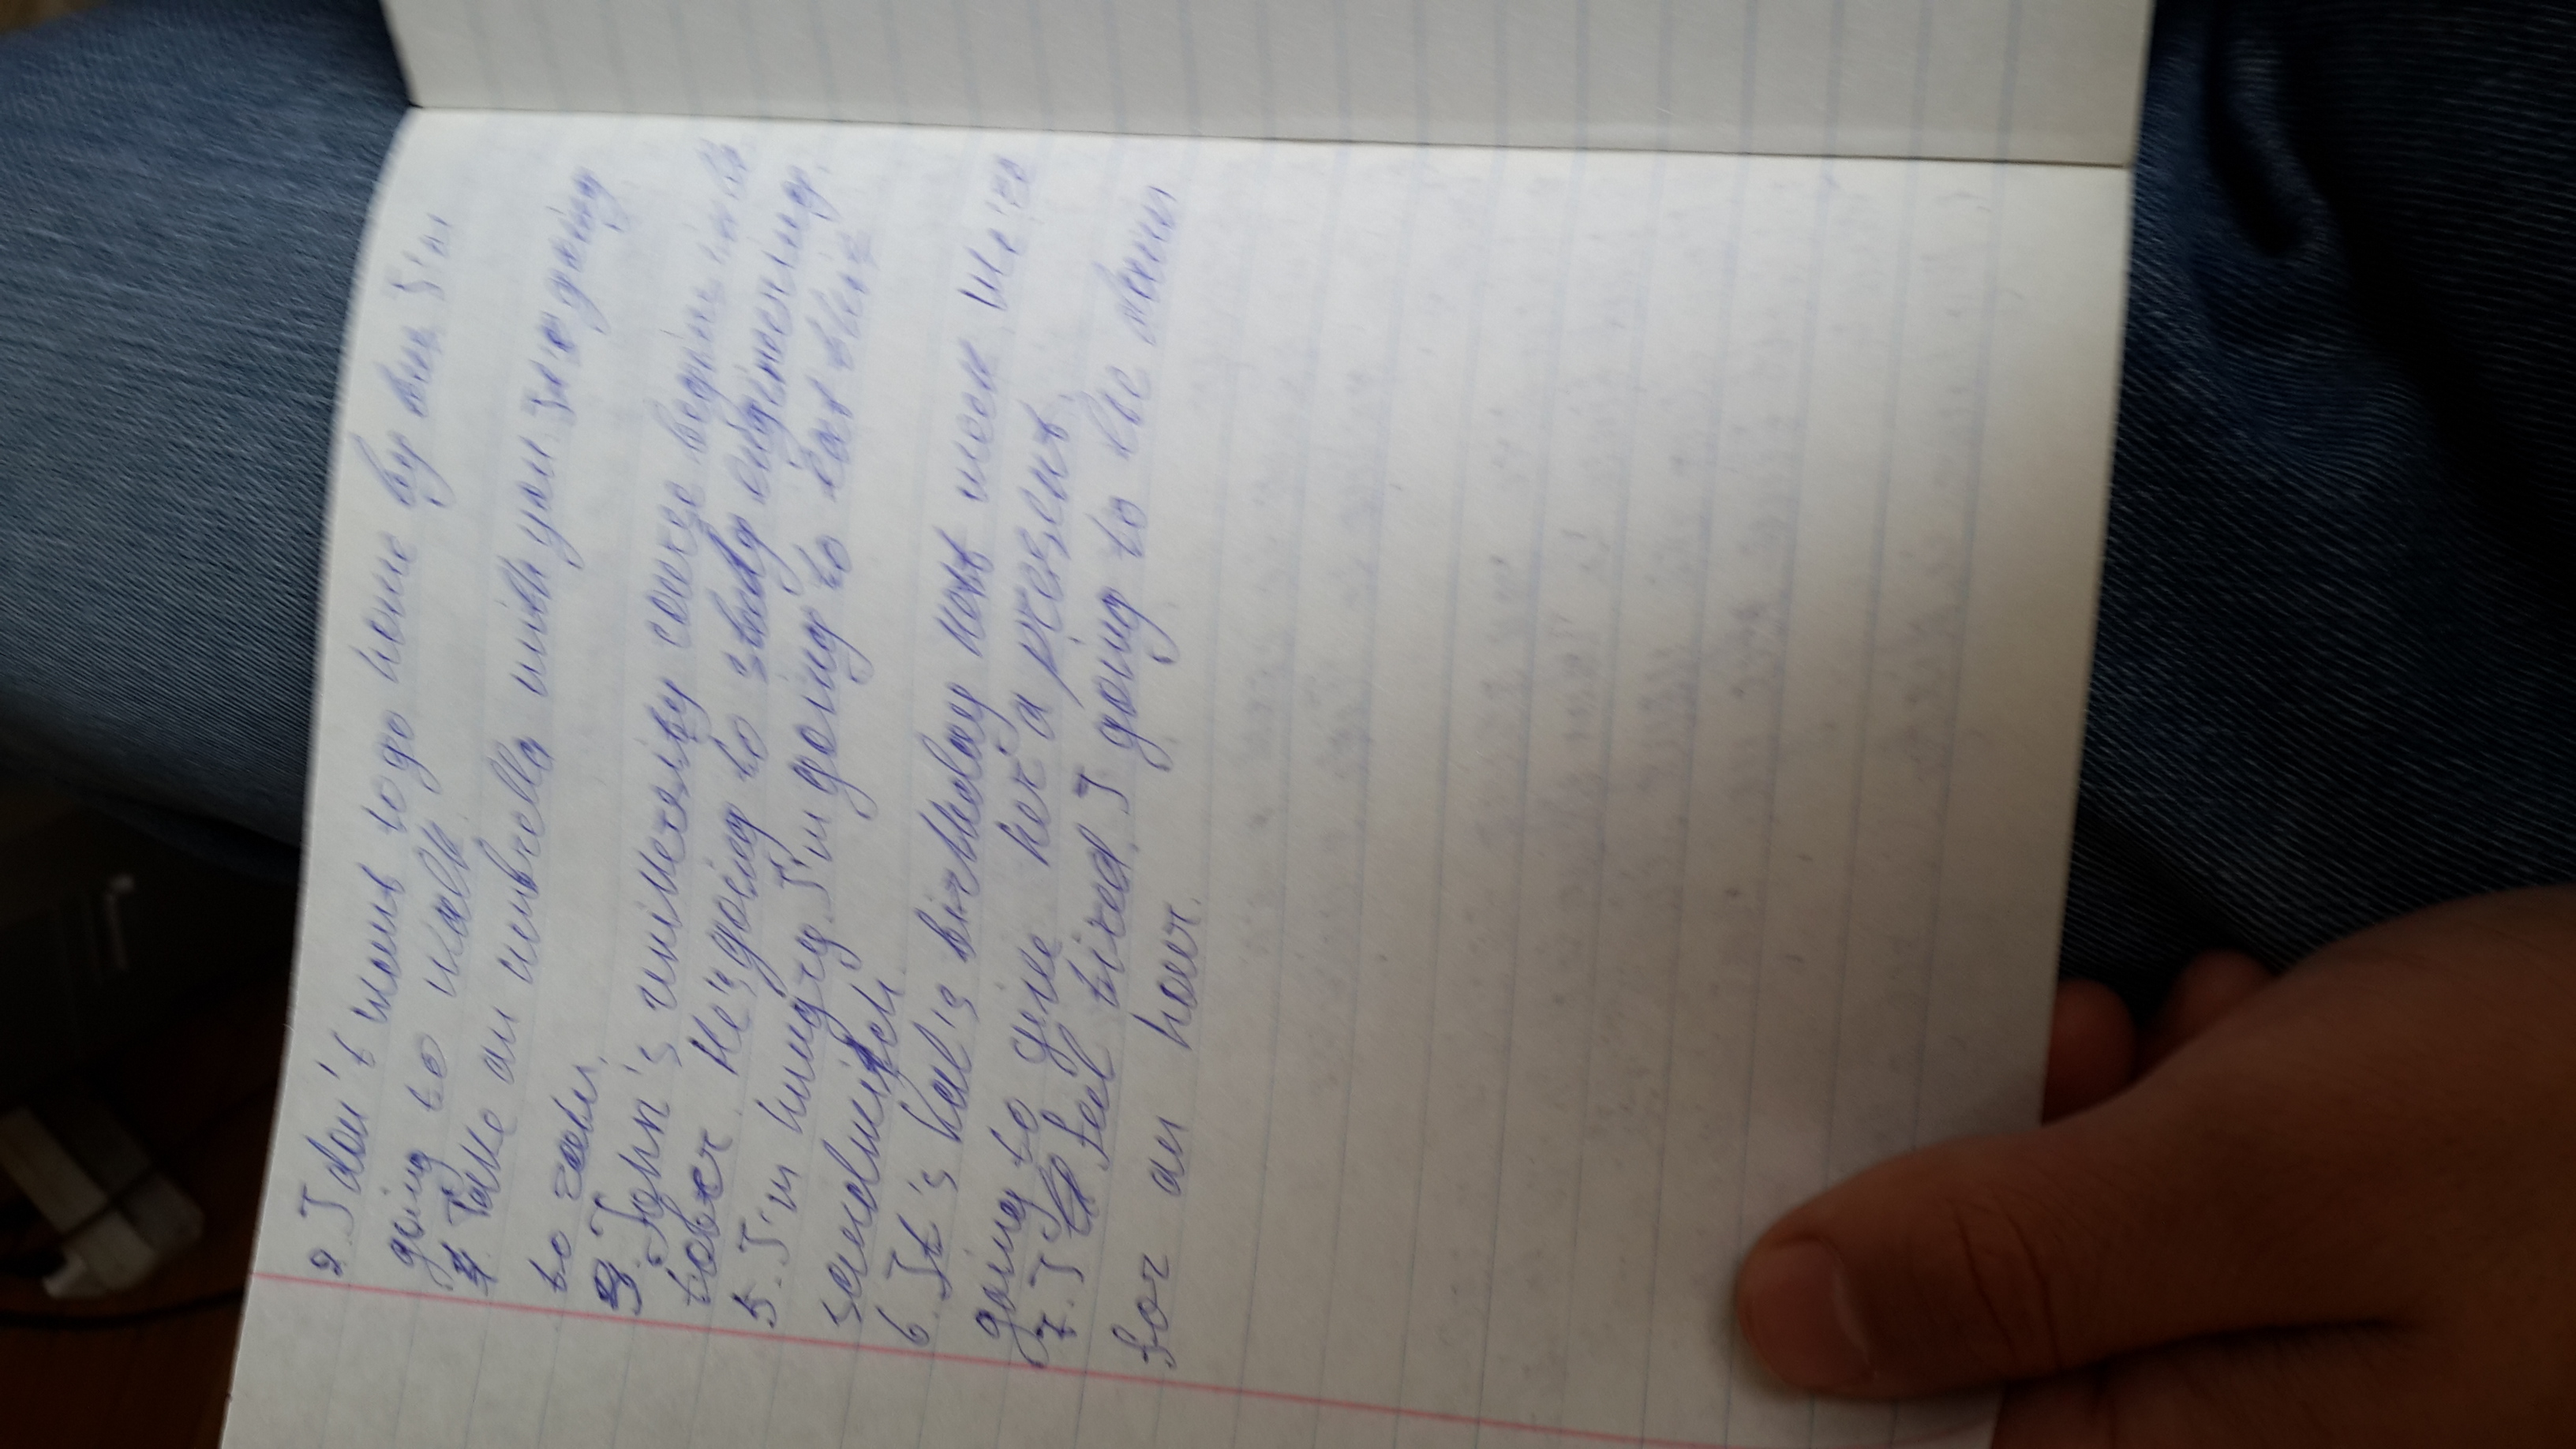 2. I don't want to go home by bus. I'm
going to walk.
4. Take an umbrella with you. It's going
to rain.
3. John's university course begins in Oc
tober. He's going to study engineering.
5. I'm hungry. I'm going to eat this
sandwitch.
6. It's Val's birthday next week. We're
going to give her a present.
7. I feel tired. I going to lie down
for an hour.